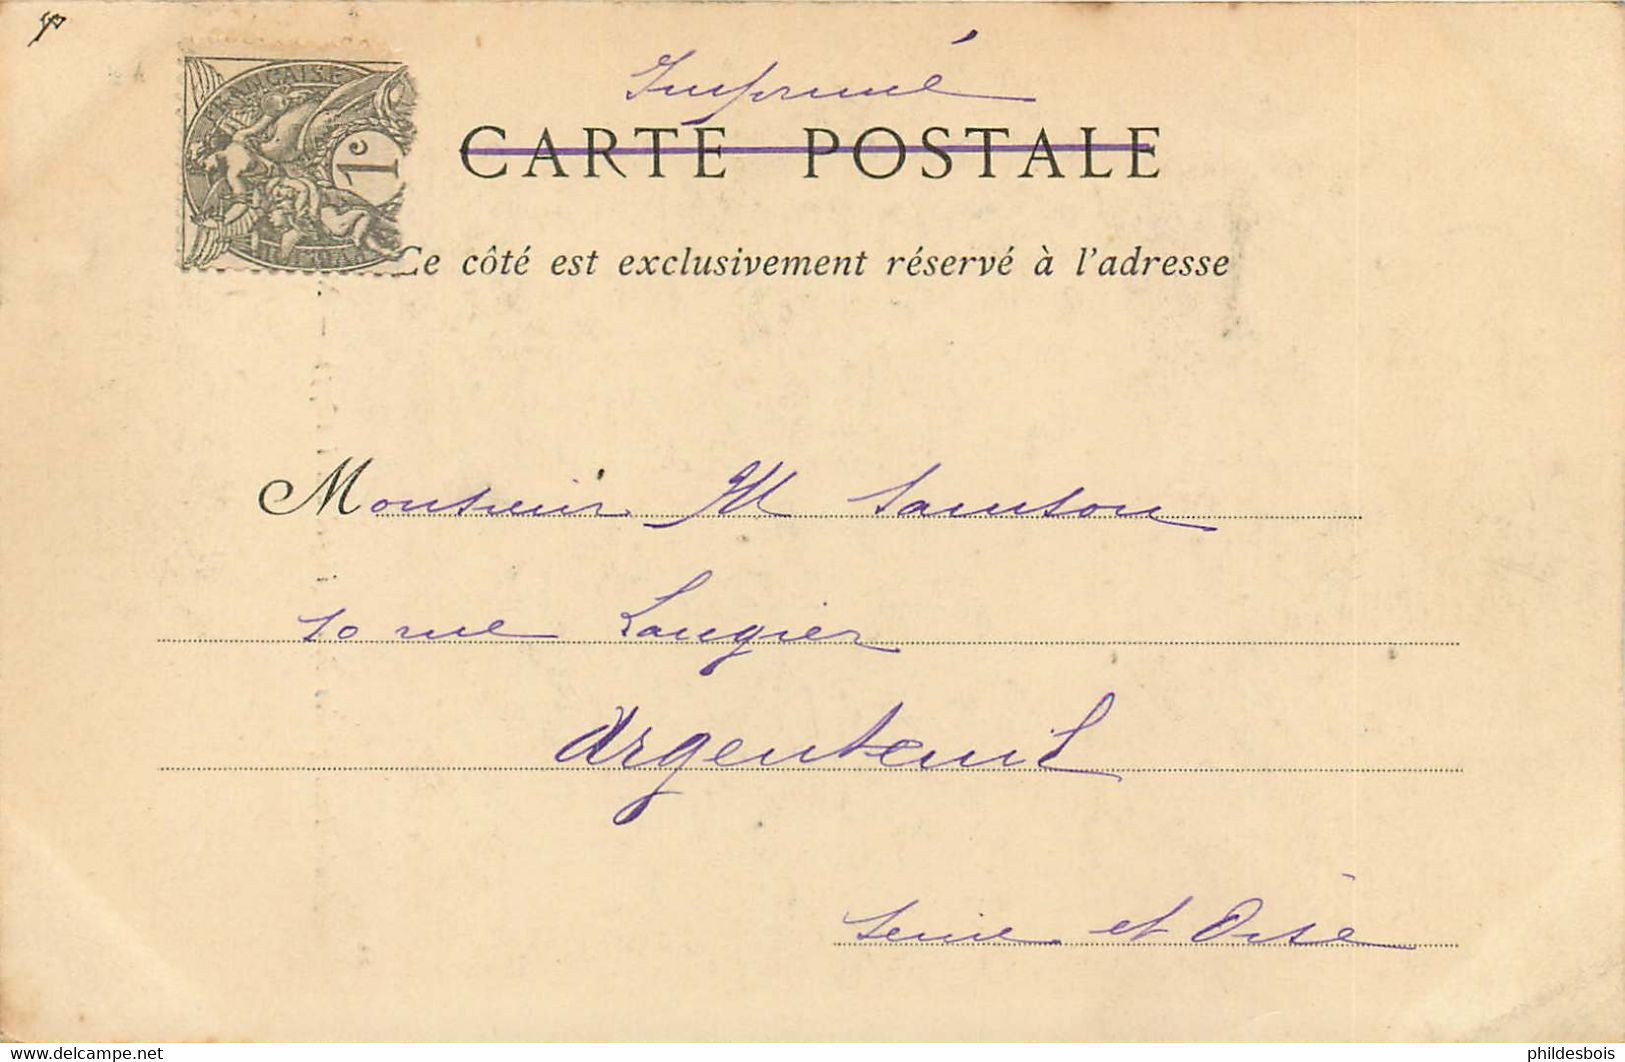 Imprimé
FRANÇAISE
1c
CARTE POSTALE
Ce côté est exclusivement réservé à l'adresse
Monsieur M Samson
10 rue Laugier
Argenteuil
Seine et Oise
https://www.delcampe.net
phildesbois